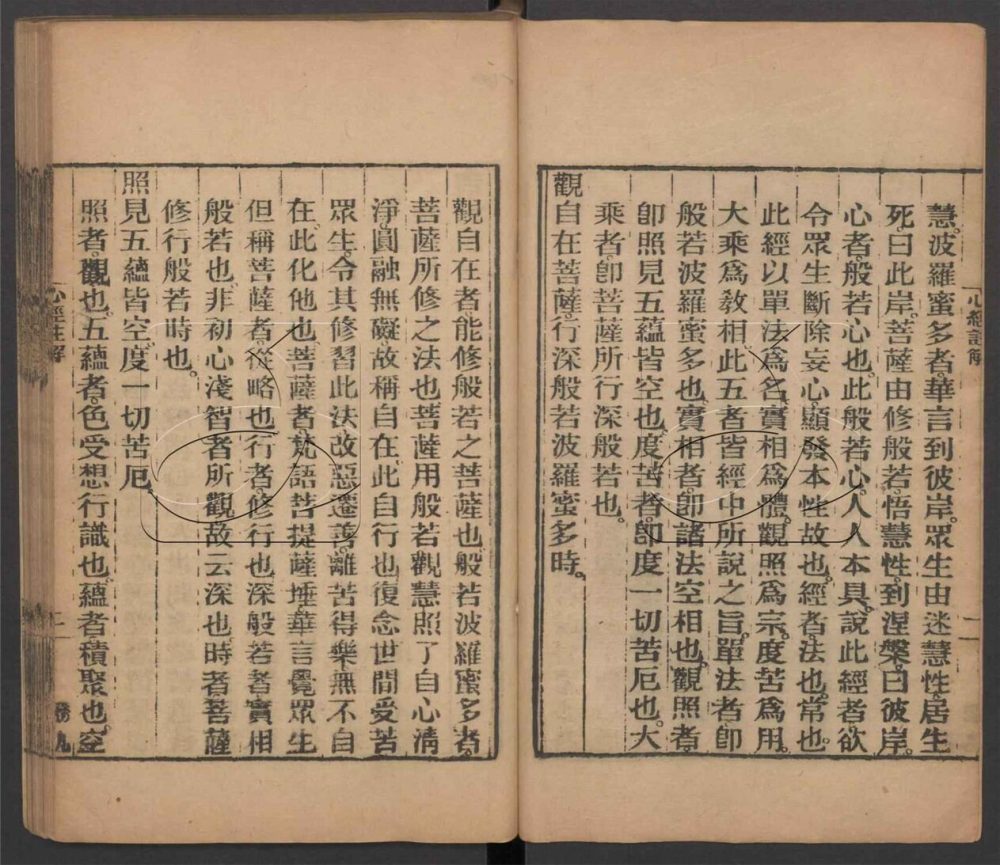 心經註解
一
慧。波羅蜜多者。華言到彼岸。眾生由迷慧性。居生
死。曰此岸。菩薩由修般若。悟慧性。到涅槃。曰彼岸。
心者。般若心也。此般若心。人人本具。說此經者。欲
令眾生斷除妄心。顯發本性故也。經者。法也。常也。
此經以單法爲名。實相爲體。觀照爲宗。度苦爲用。
大乘爲敎相。此五者。皆經中所說之旨。單法者。卽
般若波羅蜜多也。實相者。卽諸法空相也。觀照者。
卽照見五蘊皆空也。度苦者。卽度一切苦厄也。大
乘者。卽菩薩所行深般若也。
觀自在菩薩。行深般若波羅蜜多時。
觀自在者。能修般若之菩薩也。般若波羅蜜多者。
菩薩所修之法也。菩薩用般若觀慧。照了自心淸
淨。圓融無礙。故稱自在。此自行也。復念世間受苦
眾生。令其修習此法。改惡遷善。離苦得樂。無不自
在。此化他也。菩薩者。梵語菩提薩埵。華言覺眾生。
但稱菩薩者。從略也。行者。修行也。深般若者。實相
般若也。非初心淺智者所觀。故云深也。時者。菩薩
修行般若時也。
照見五蘊皆空。度一切苦厄。
照者。觀也。五蘊者。色受想行識也。蘊者。積聚也。空
心經註解
二